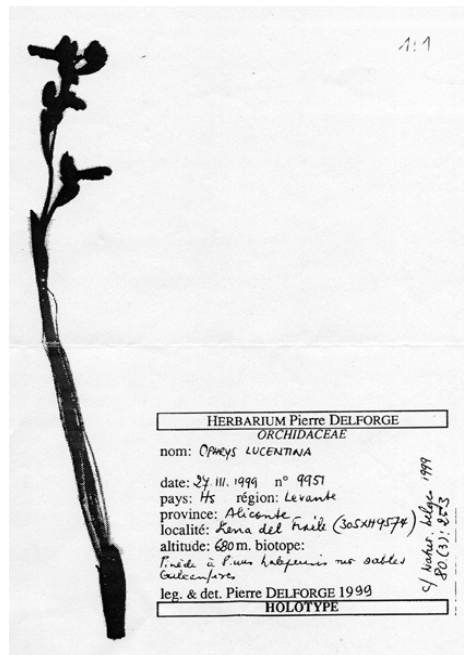 1:1
HERBARIUM Pierre DELFORGE
ORCHIDACEAE
nom: OPHRYS LUCENTINA
date: 27.III.1999 n° 9951
pays: Hs région: Levante
province: Alicante
localité: del Fraile (30SXH9574)
altitude: 680m. biotope:
Pinède à Pinus halepensis sur sables
calcarifères
leg. & det. Pierre DELFORGE 1999
HOLOTYPE
cf Natur. belges 1999
80(3):